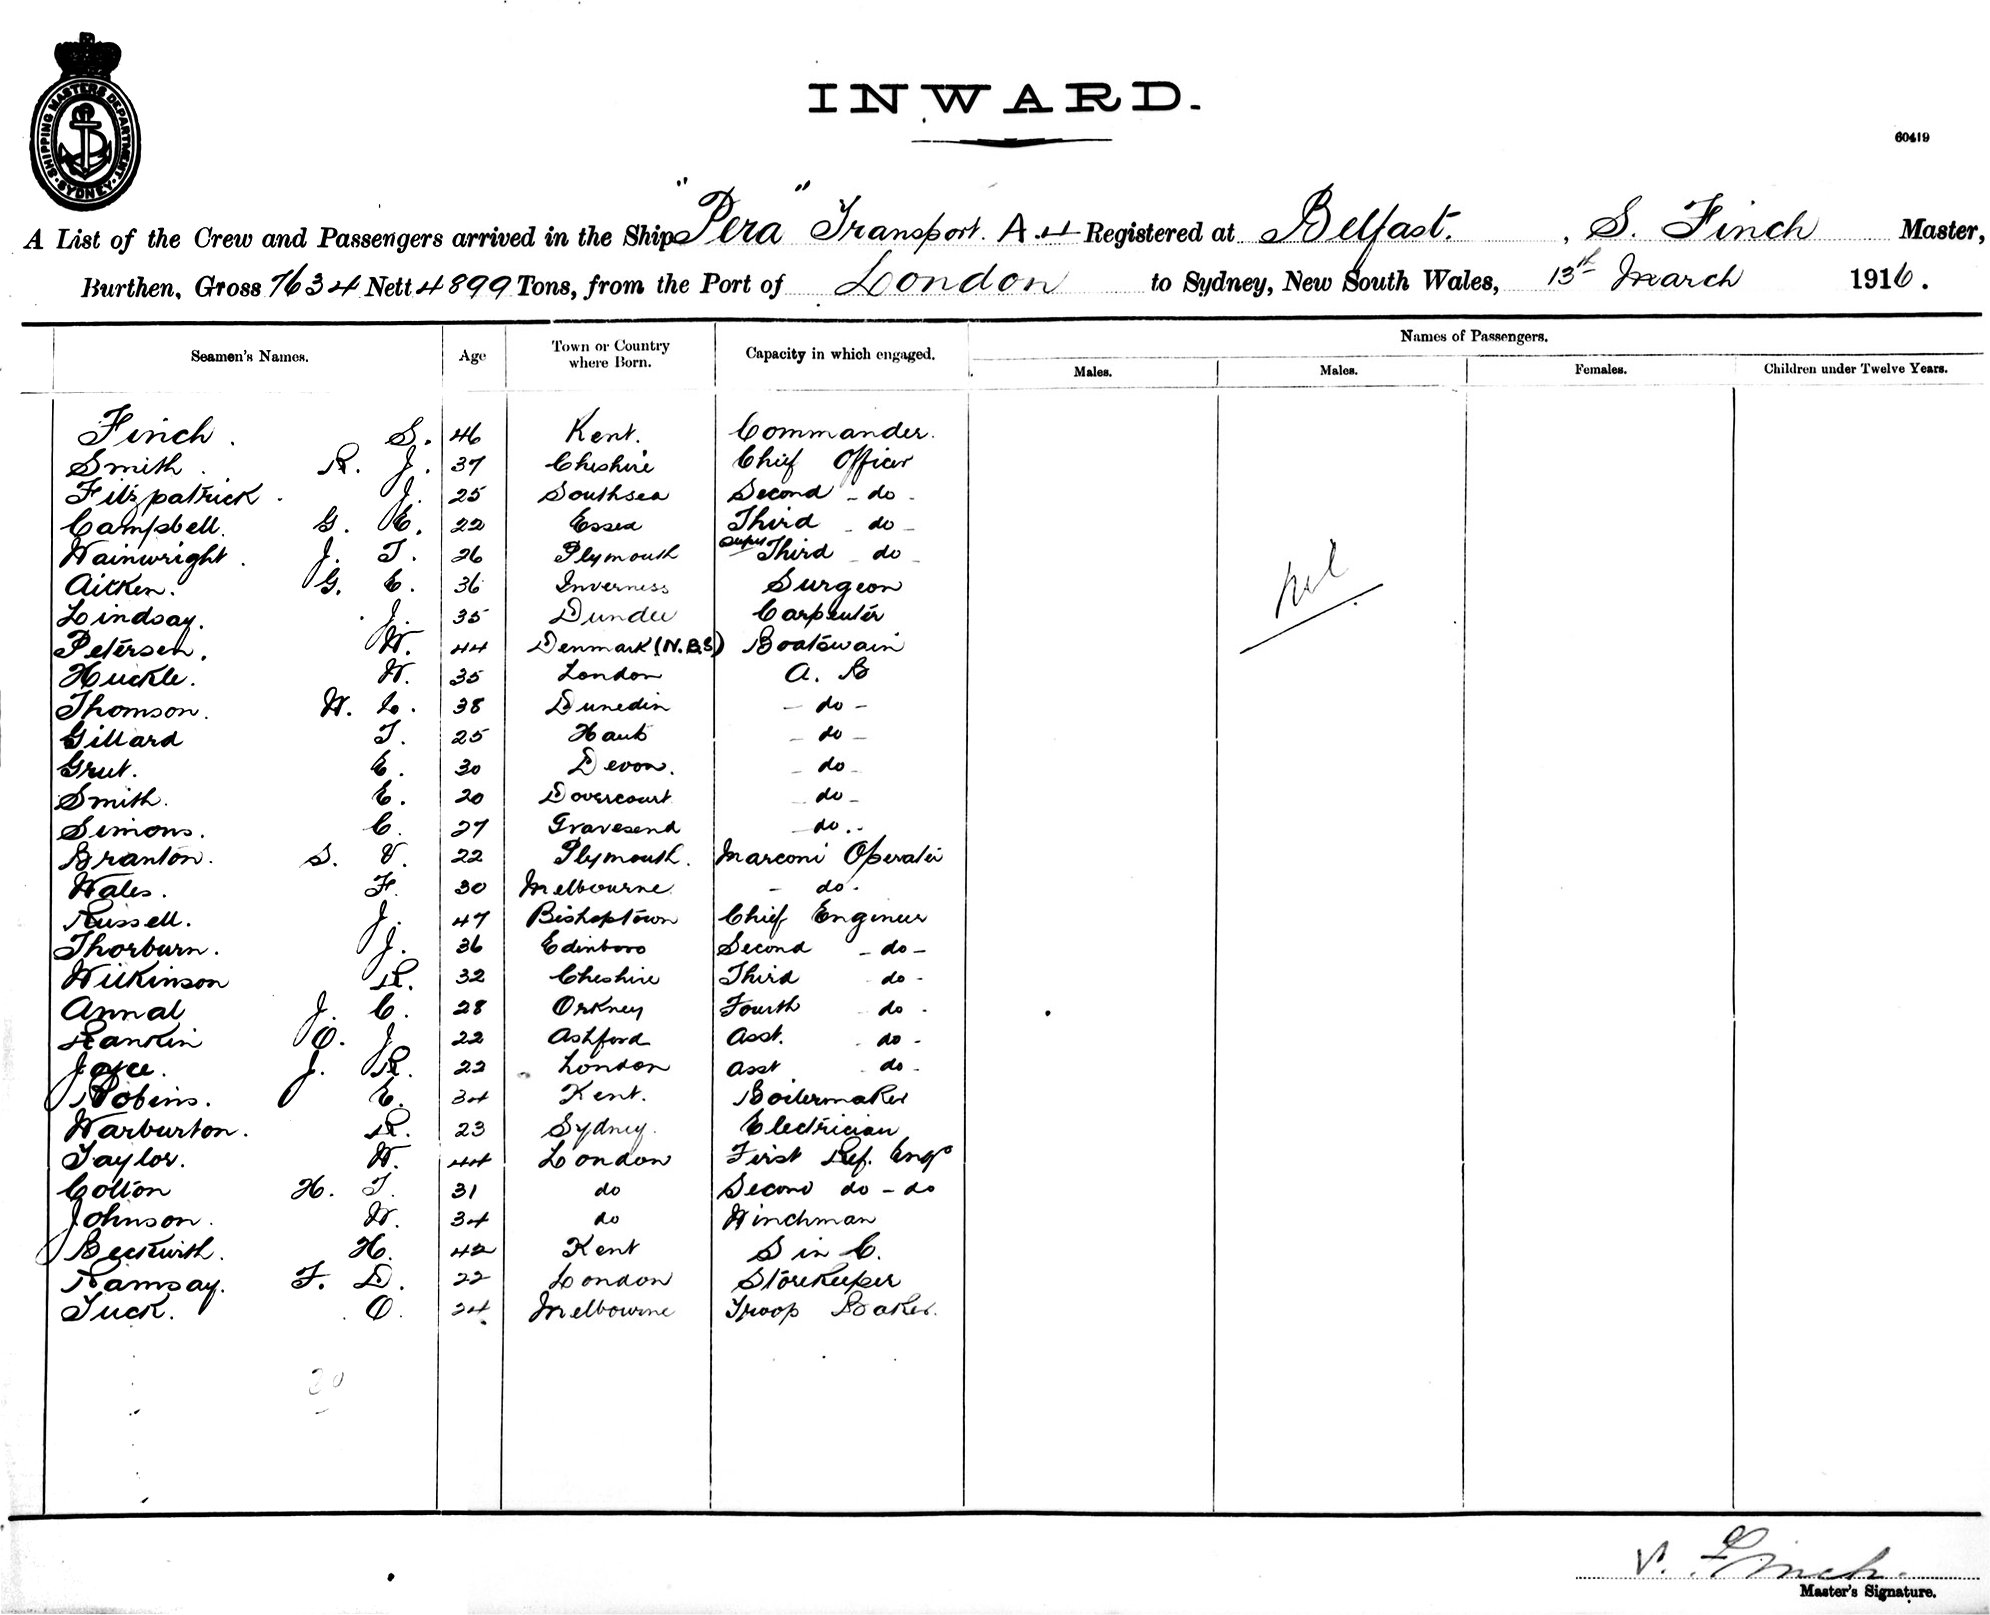 SHIPPING MASTERS DEPARTMENT
SYDNEY
INWARD.
60419
A List of the Crew and Passengers arrived in the Ship "Pera" Transport. A.4 Registered at Belfast. , S. Finch Master,
Burthen, Gross 7634 Nett 4899 Tons, from the Port of London to Sydney, New South Wales, 13th March 1916.
Seamen's Names. Age Town or Country where Born. Capacity in which engaged. Names of Passengers.
Males. Males. Females. Children under Twelve Years.
Finch. S. 46 Kent. Commander.
Smith. R. J. 37 Cheshire Chief Officer
Fitzpatrick. J. 25 Southsea Second - do -
Campbell. G. E. 22 Essex Third - do -
Wainwright. J. T. 26 Plymouth Supy Third - do -
Aitken. G. E. 36 Inverness Surgeon
Lindsay. J. 35 Dundee Carpenter
Petersen. W. 44 Denmark (N.B.S) Boatswain
Huckle. W. 35 London A. B
Thomson. W. L. 38 Dunedin - do -
Gillard T. 25 Hants - do -
Grut. E. 30 Devon. - do -
Smith. E. 20 Dovercourt - do -
Simons. C. 27 Gravesend - do -
Branton. S. V. 22 Plymouth. Marconi Operator
Wales. F. 30 Melbourne - do -
Russell. J. 47 Bishoptown Chief Engineer
Thorburn. J. 36 Edinboro Second - do -
Wilkinson R. 32 Cheshire Third do -
Annal J. C. 28 Orkney Fourth do -
Rankin O. J. 22 Ashford Asst. - do -
Joyce. J. R. 22 London Asst do -
Robins. E. 34 Kent. Boilermaker
Warburton. R. 23 Sydney. Electrician
Taylor. W. 44 London First Ref. Engr
Colton H. T. 31 do Second do - do
Johnson. W. 34 do Winchman
Beckwith. H. 42 Kent S in C.
Ramsay. F. D. 22 London Storekeeper
Tuck. O. 24 Melbourne Troop Baker.
nil
30
S. Finch.
Master's Signature.